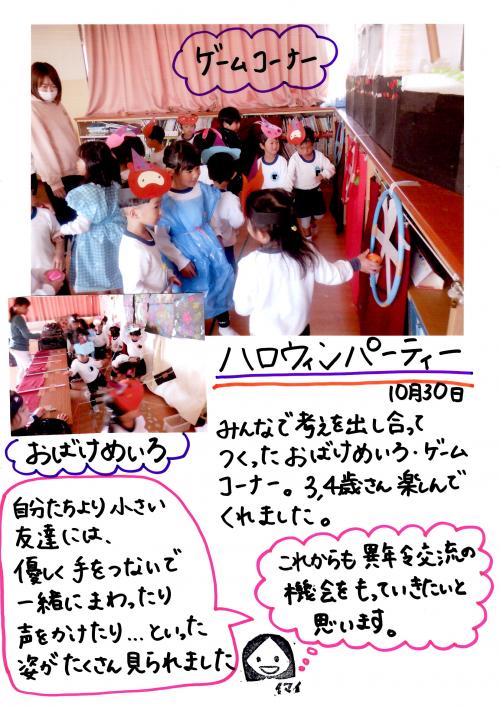 ゲームコーナー
ハロウィンパーティー
10月30日
おばけめいろ
みんなで考えを出し合って
つくったおばけめいろ・ゲーム
コーナー。3,4歳さん楽しんで
くれました。
自分たちより小さい
友達には、
優しく手をつないで
一緒にまわったり
声をかけたり…といった
姿がたくさん見られました
これからも異年令交流の
機会をもっていきたいと
思います。